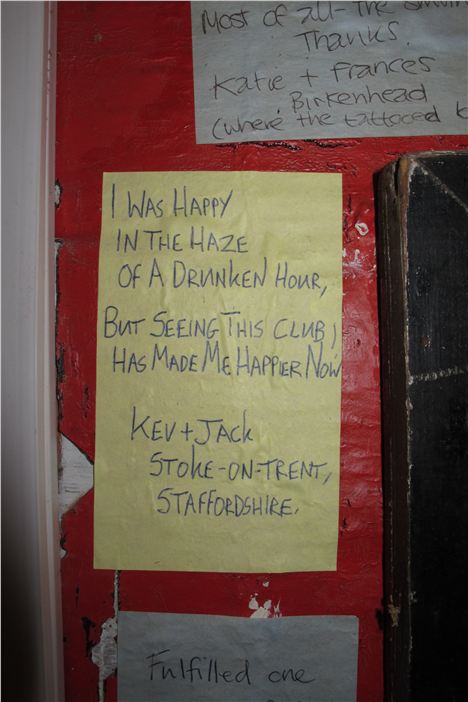 Most of all - The
Thanks.
Katie + Frances
Birkenhead
(where the tattooed
I WAS HAPPY
IN THE HAZE
OF A DRUNKEN HOUR,
BUT SEEING THIS CLUB,
HAS MADE ME HAPPIER NOW
KEV + JACK
STOKE-ON-TRENT,
STAFFORDSHIRE.
Fulfilled one